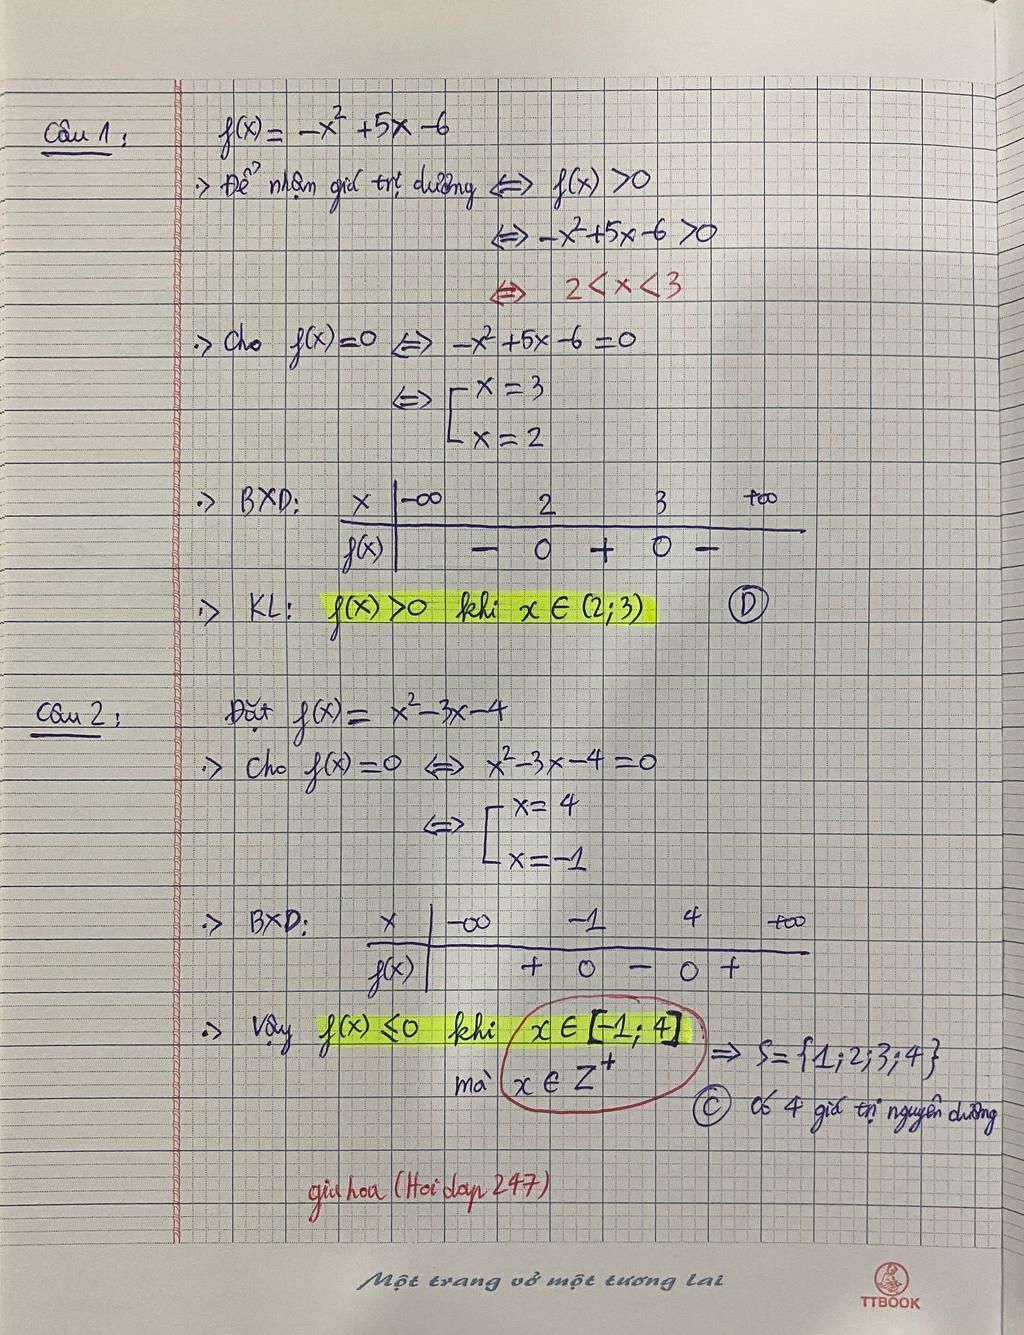 Câu 1: f(x) = -x² + 5x - 6
·> Để nhận giá trị dương <=> f(x) > 0
<=> -x² + 5x - 6 > 0
<=> 2 < x < 3
·> Cho f(x) = 0 <=> -x² + 5x - 6 = 0
<=> [ x = 3
x = 2
·> BXD: x | -∞ 2 3 +∞
f(x) | - 0 + 0 -
·> KL: f(x) > 0 khi x ∈ (2; 3) Ⓓ
Câu 2: Đặt f(x) = x² - 3x - 4
·> Cho f(x) = 0 <=> x² - 3x - 4 = 0
<=> [ x = 4
x = -1
·> BXD: x | -∞ -1 4 +∞
f(x) | + 0 - 0 +
·> Vậy f(x) ≤ 0 khi x ∈ [-1; 4]
mà x ∈ Z⁺ => S = {1; 2; 3; 4}
Ⓒ Có 4 giá trị nguyên dương
giahoa (Hoidap 247)
Một trang vở một tương lai
TTBOOK